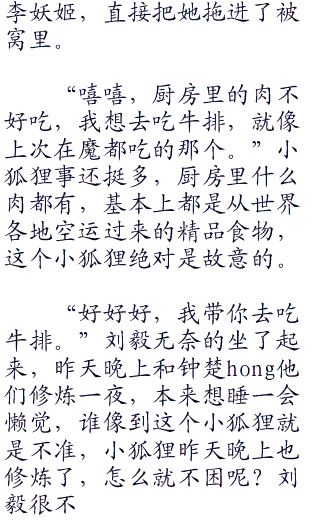 李妖姬，直接把她拖进了被
窝里。
“嘻嘻，厨房里的肉不
好吃，我想去吃牛排，就像
上次在魔都吃的那个。”小
狐狸事还挺多，厨房里什么
肉都有，基本上都是从世界
各地空运过来的精品食物，
这个小狐狸绝对是故意的。
“好好好，我带你去吃
牛排。”刘毅无奈的坐了起
来，昨天晚上和钟楚hong他
们修炼一夜，本来想睡一会
懒觉，谁像到这个小狐狸就
是不准，小狐狸昨天晚上也
修炼了，怎么就不困呢？刘
毅很不